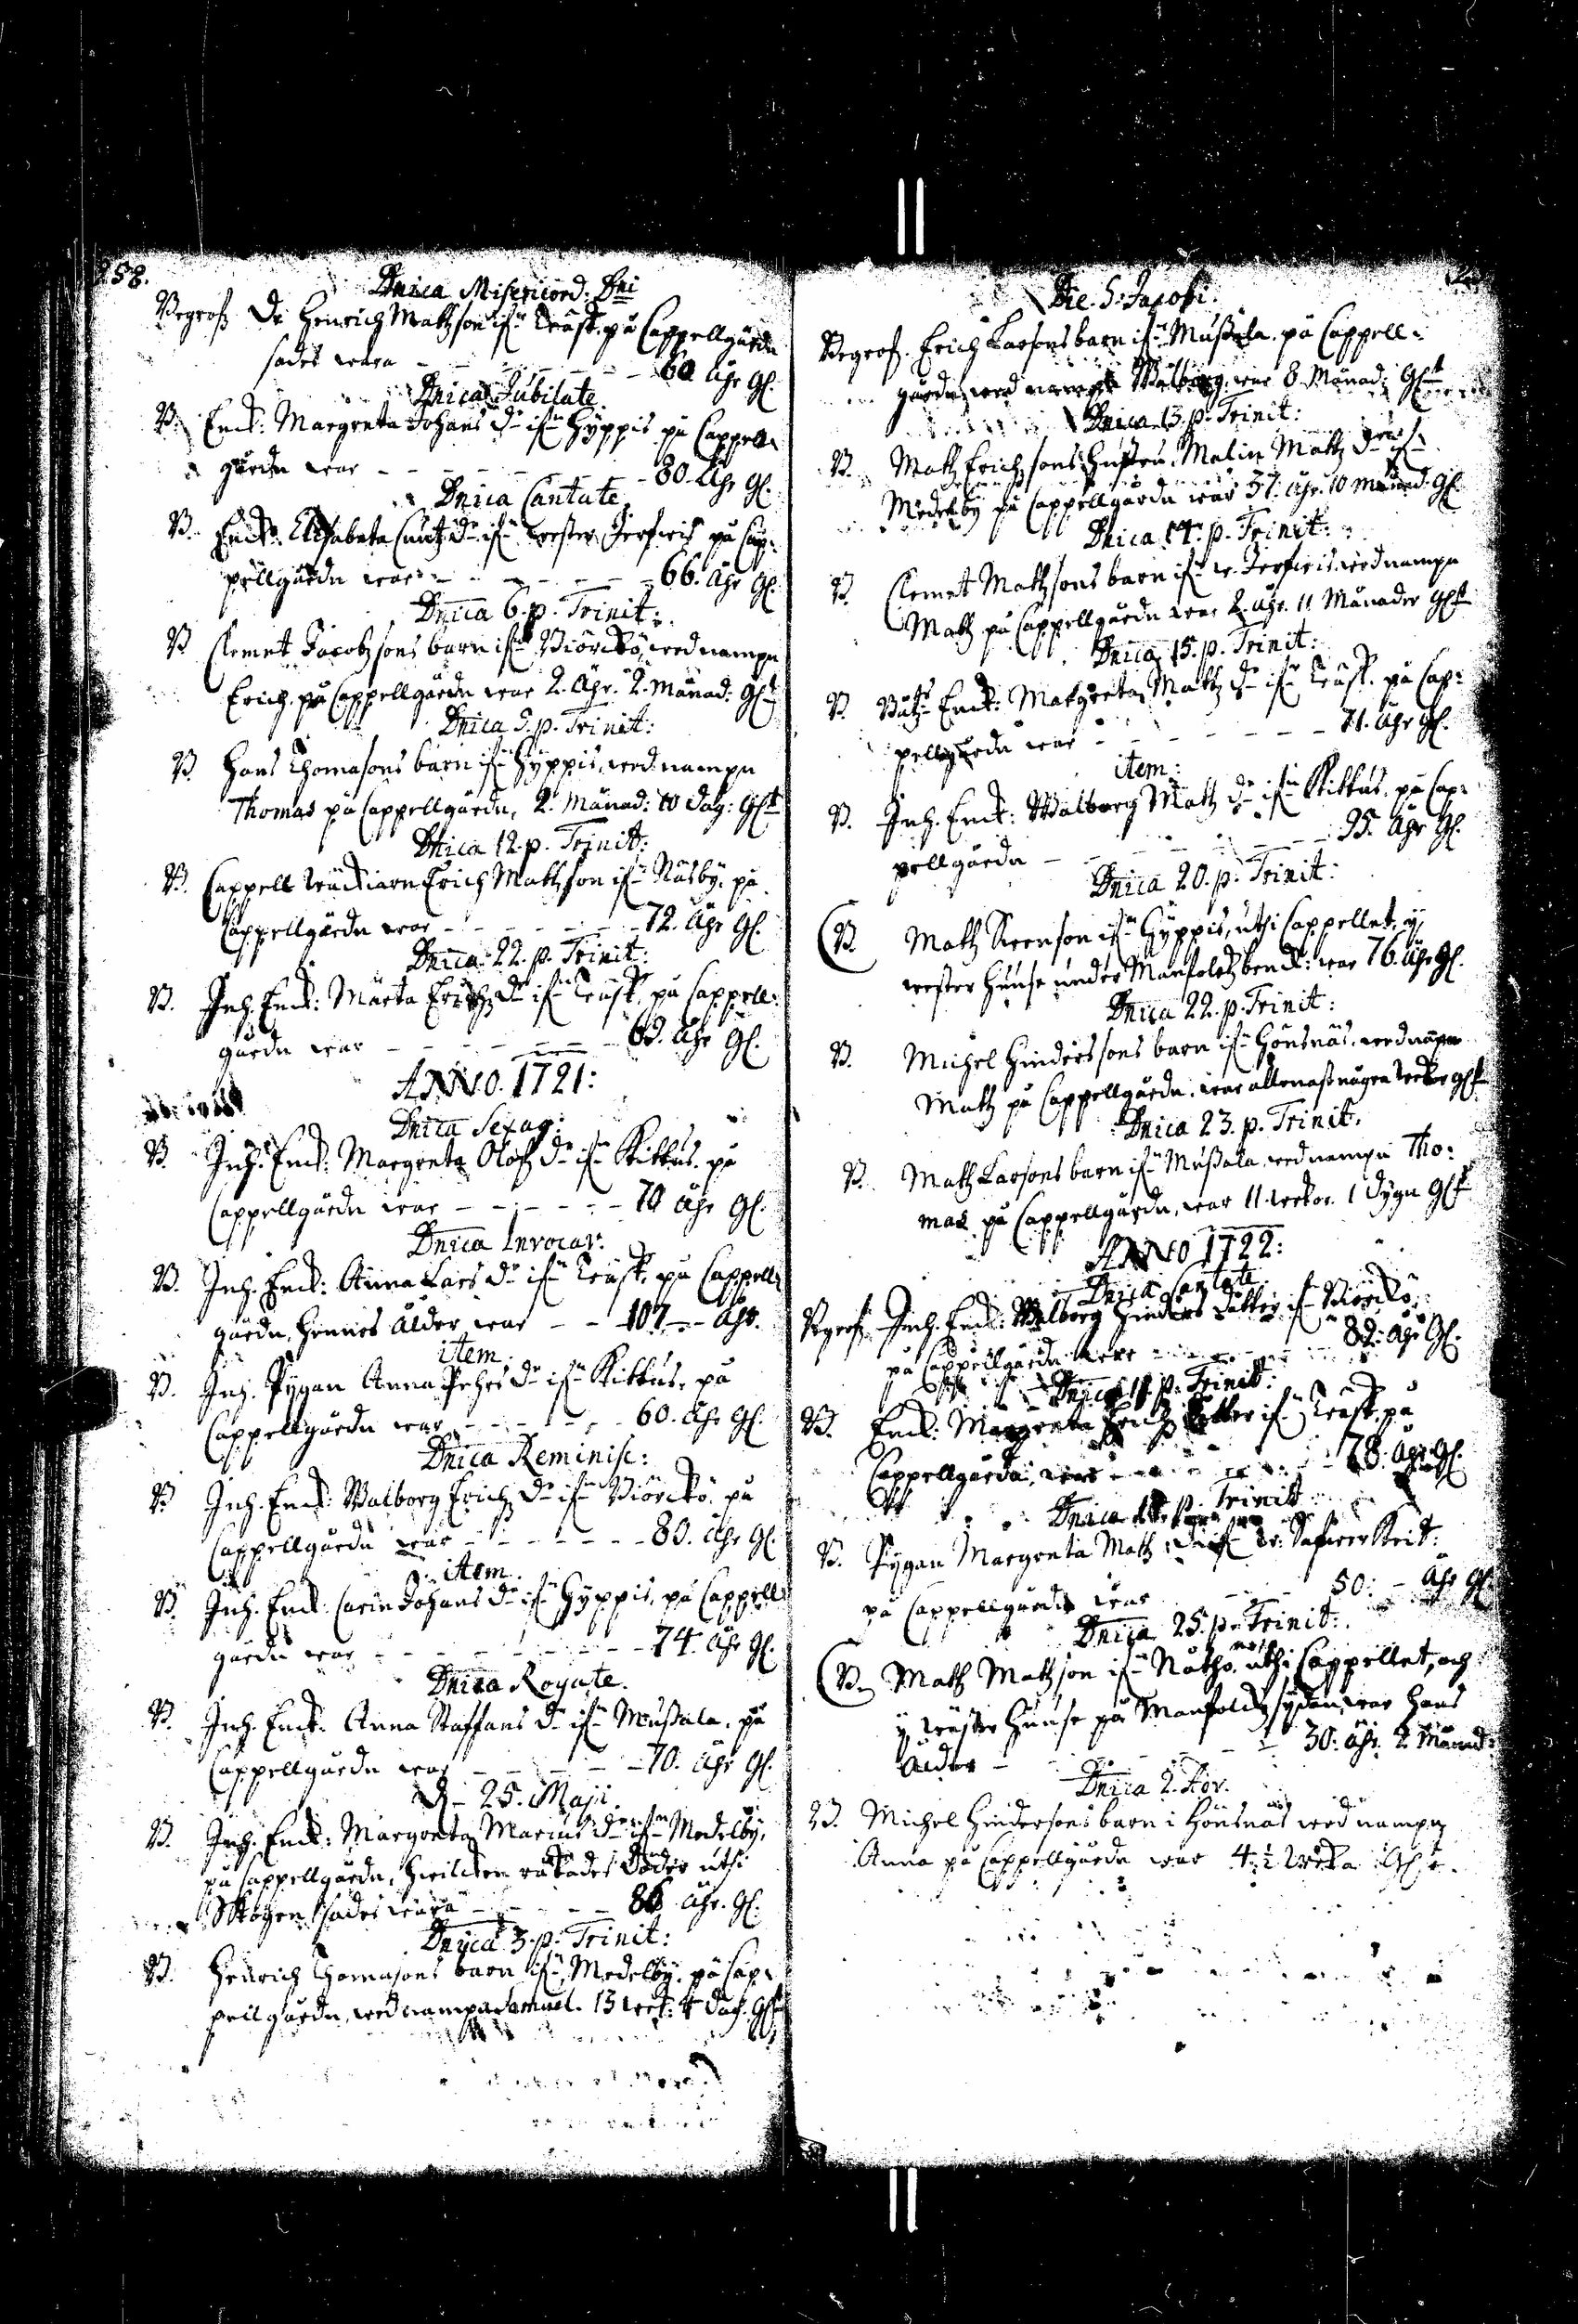 258.
Dnica Misericord: Dni
Begrofz Dr Henrich Mattzson ifrn Träsk. på Cappellgårdn
sades wara - - - - - - 60 åhr gl.
Dnica Jubilate.
B. Enck: Margreta Johans dr ifrn Hyppis på Cappell-
gårdn war - - - - - - 80. åhr gl.
Dnica Cantate
B. Enck: Elisabeta Cnutz dr ifrn wester Jerfwis på Cap-
pellgårdn war - - - - - - 66. åhr gl.
Dnica 6. p. Trinit:
B. Clemet Jacobzsons barn ifrn Biörckö, wed nampn
Erich. på Cappellgårdn war 2. åhr. 2. Månad: glt
Dnica 9. p. Trinit:
B. Hans Thomasons barn ifrn Hyppis, wed nampn
Thomas på Cappellgårdn, 2. Månad: 10 dag: glt
Dnica 12. p. Trinit:
B. Cappell wäcktiarn Erich Mattzson ifrn Näsby. på
Cappellgårdn war - - - - - - 72. åhr gl.
Dnica 22. p. Trinit:
B. Inh. Enck: Märta Erichz dr ifrn Träsk, på Cappell-
gårdn war - - - - - - 69. åhr gl.
ANNO. 1721:
Dnica Sexag:
B. Inh. Enck: Margreta Olofz dr ifrn Kittus. på
Cappellgårdn war - - - - - - 70 åhr gl.
Dnica Invocav:
B. Inh. Enck: Anna Lars dr ifrn Träsk, på Cappell-
gårdn, hennes ålder war - - 107 - - åhr.
item.
B. Inh. Pygan Anna Pehrs dr ifrn Kittus, på
Cappellgårdn war - - - - - - 60. åhr gl.
Dnica Reminisc:
B. Inh. Enck: Walborg Erichz dr ifrn Biörckö, på
Cappellgårdn war - - - - - - 80. åhr gl.
item.
B. Inh. Enck: Carin Johans dr ifrn Hyppis, på Cappell-
gårdn war - - - - - - 74. åhr gl.
Dnica Rogate.
B. Inh. Enck: Anna Staffans dr ifrn Mussala. på
Cappellgårdn war - - - - - 70. åhr gl.
d. 25. Maji.
B. Inh. Enck: Margreta Marcus dr ifrn Medelby,
på Cappellgårdn, hwilcken råkades döder uthi
Skogen, sades wara - - - - - 86 åhr. gl.
Dnica 3. p. Trinit:
B. Henrich Thomasons barn ifrn Medelby. på Cap-
pellgårdn, wed nampn Samuel. 13 weck: 4 dag. glt
Die. S. Jacobi.
Begrof. Erich Larsons barn ifrn Mussala. på Cappell-
gårdn, wed nampn Walborg. war 8. Månad: glt
Dnica 13. p. Trinit:
B. Mattz Erichzsons hustru, Malin Mattz dr ifrn
Medelby på Cappellgårdn war 37. åhr. 10 månad: gl.
Dnica 14. p. Trinit:
B. Clemet Mattzsons barn ifrn w. Jerfwis. wed nampn
Mattz på Cappellgårdn war 2. åhr. 11 Månader glt
Dnica 15. p. Trinit:
B. Enck: Margreta Mattz dr ifrn Träsk. på Cap-
pellgårdn war - - - - - - 71. åhr gl.
item:
B. Inh. Enck: Walborg Mattz dr ifrn Kittus. på Cap-
pellgårdn - - - - - - 95. åhr gl.
Dnica 20. p. Trinit:
(B. Mattz Swenson ifrn Hyppis, uthi Cappellet, y
wester huuse under Manfolckz benck: war 76. åhr gl.
Dnica 22. p. Trinit:
B. Michel Hinderssons barn ifrn Hönsnäs. wed nampn
Mattz på Cappellgårdn. war allenast några weckor glt
Dnica 23. p. Trinit.
B. Mattz Larsons barn ifrn Mussala, wed nampn Tho-
mas på Cappellgårdn, war 11 weckor. 1 dygn glt
ANNO 1722:
Dnica Cantate
Begrof. Inh. Enck: Walborg Hinders dotter ifrn Biörckö,
på Cappellgårdn war - - - - - - 82. åhr gl.
p. Trinit:
B. Enck: Margreta Erichz dotter ifrn Träsk, på
Cappellgårdn, war - - - - - - 78. åhr gl.
Dnica p. Trinit
B. Pygan Margreta Mattz dr ifrn
på Cappellgårdn war - - - 50: - åhr gl.
Dnica 25. p. Trinit:
(B. Mattz Mattzson ifrn uthi Cappellet, och
y wäster huuse på Manfolckz sydan, war hans
ålder - - - - - - 30. åhr. 2. Månad:
Dnica 2. Adv.
B. Michel Hindersons barn i Hönsnäs wed nampn
Anna på Cappellgårdn war 4 ½ wecka glt.